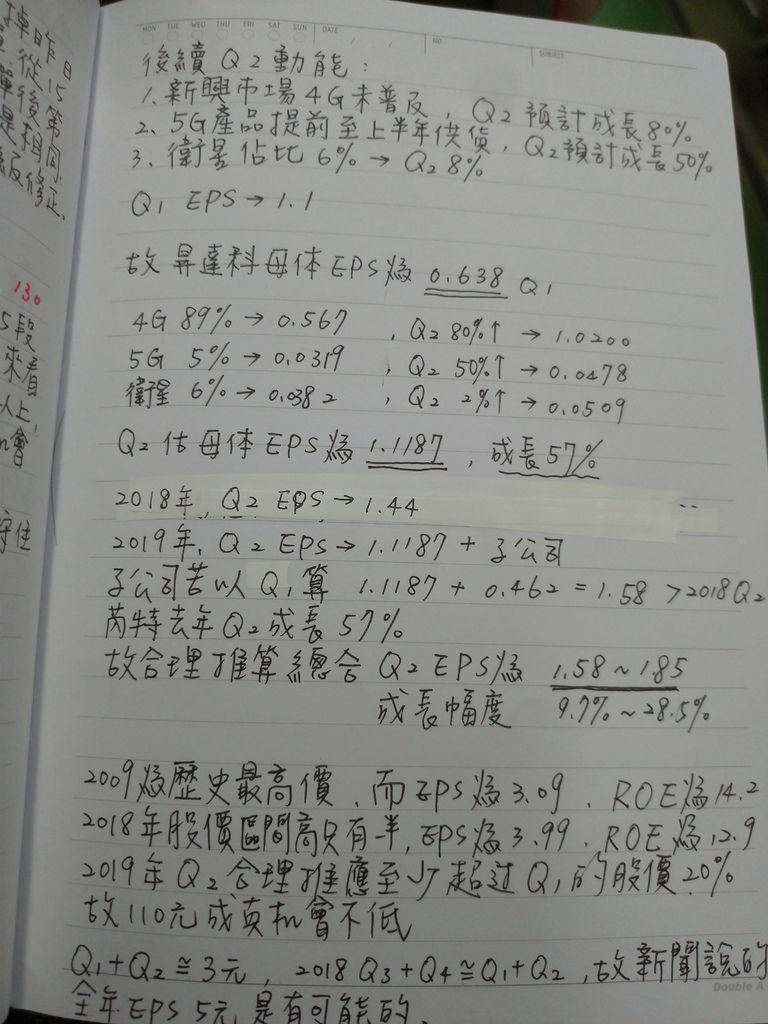 掉昨日
從15第
後同
是相
級修正.
130
5段
來看
以上,
會
守住
MON TUE WED THU FRI SAT SUN DATE NO. SUBJECT
後續Q2動能:
1. 新興市場4G未普及, Q2預計成長80%
2. 5G產品提前至上半年供货, Q2預計成長50%
3. 衛星佔比6% → Q2 8%
Q1 EPS → 1.1
故昇達科母体EPS為 0.638 Q1
4G 89% → 0.567 , Q2 80%↑ → 1.0200
5G 5% → 0.0319 , Q2 50%↑ → 0.0478
衛星 6% → 0.0382 , Q2 2%↑ → 0.0509
Q2估母体EPS為 1.1187, 成長57%
2018年, Q2 EPS → 1.44
2019年, Q2 EPS → 1.1187 + 子公司
子公司若以Q1算 1.1187 + 0.462 = 1.58 >2018Q2
芮特去年Q2成長57%
故合理推算總合Q2 EPS為 1.58 ~ 1.85
成長幅度 9.7% ~ 28.5%
2009為歷史最高價、而EPS為3.09、ROE為14.2
2018年股價區間高只有一半, EPS為3.99、ROE為12.9
2019年Q2合理推應至少超过Q1的股價20%
故110元成真机會不低
Q1+Q2≅3元, 2018 Q3+Q4≅Q1+Q2, 故新聞說的
全年EPS 5元是有可能的.
Double A